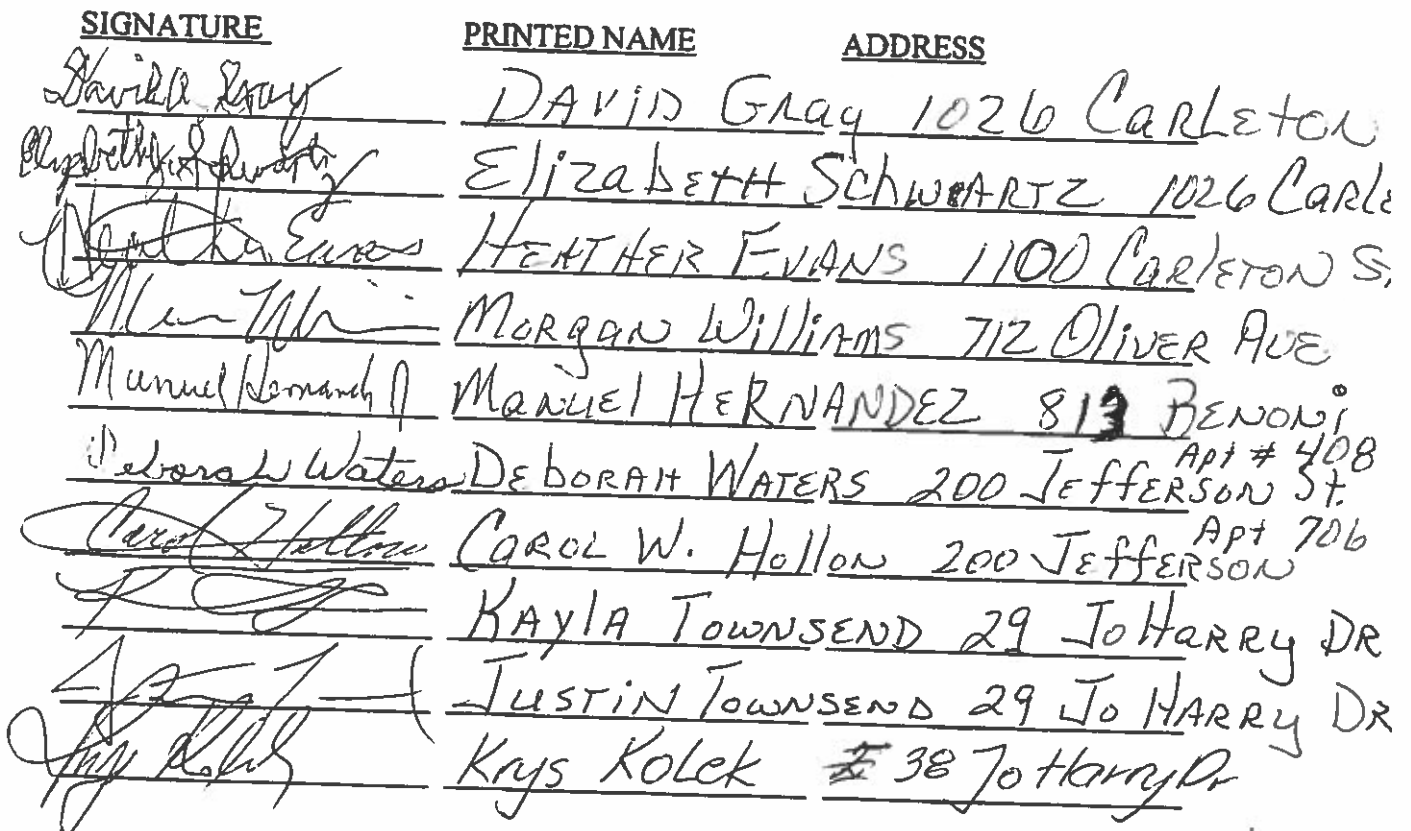 SIGNATURE PRINTED NAME ADDRESS
David Gray DAVID GRAY 1026 CARLETON
Elizabeth Schwartz Elizabeth Schwartz 1026 Carle
Heather Evans HEATHER EVANS 1100 CARLETON S.
MORGAN WilliAMS 712 OliVER AVE
Manuel Hernandez MANUEL HERNANDEZ 813 BENONi
Apt # 408
Deborah Waters DEBORAH WATERS 200 JEffERSON St.
Apt 706
Carol Hollon CAROL W. Hollon 200 JEffERSON
KAYlA TOWNSEND 29 Jo HARRy DR
JUSTiN TOWNSEND 29 Jo HARRy DR
Krys Kolek 38 Jo Harry Dr